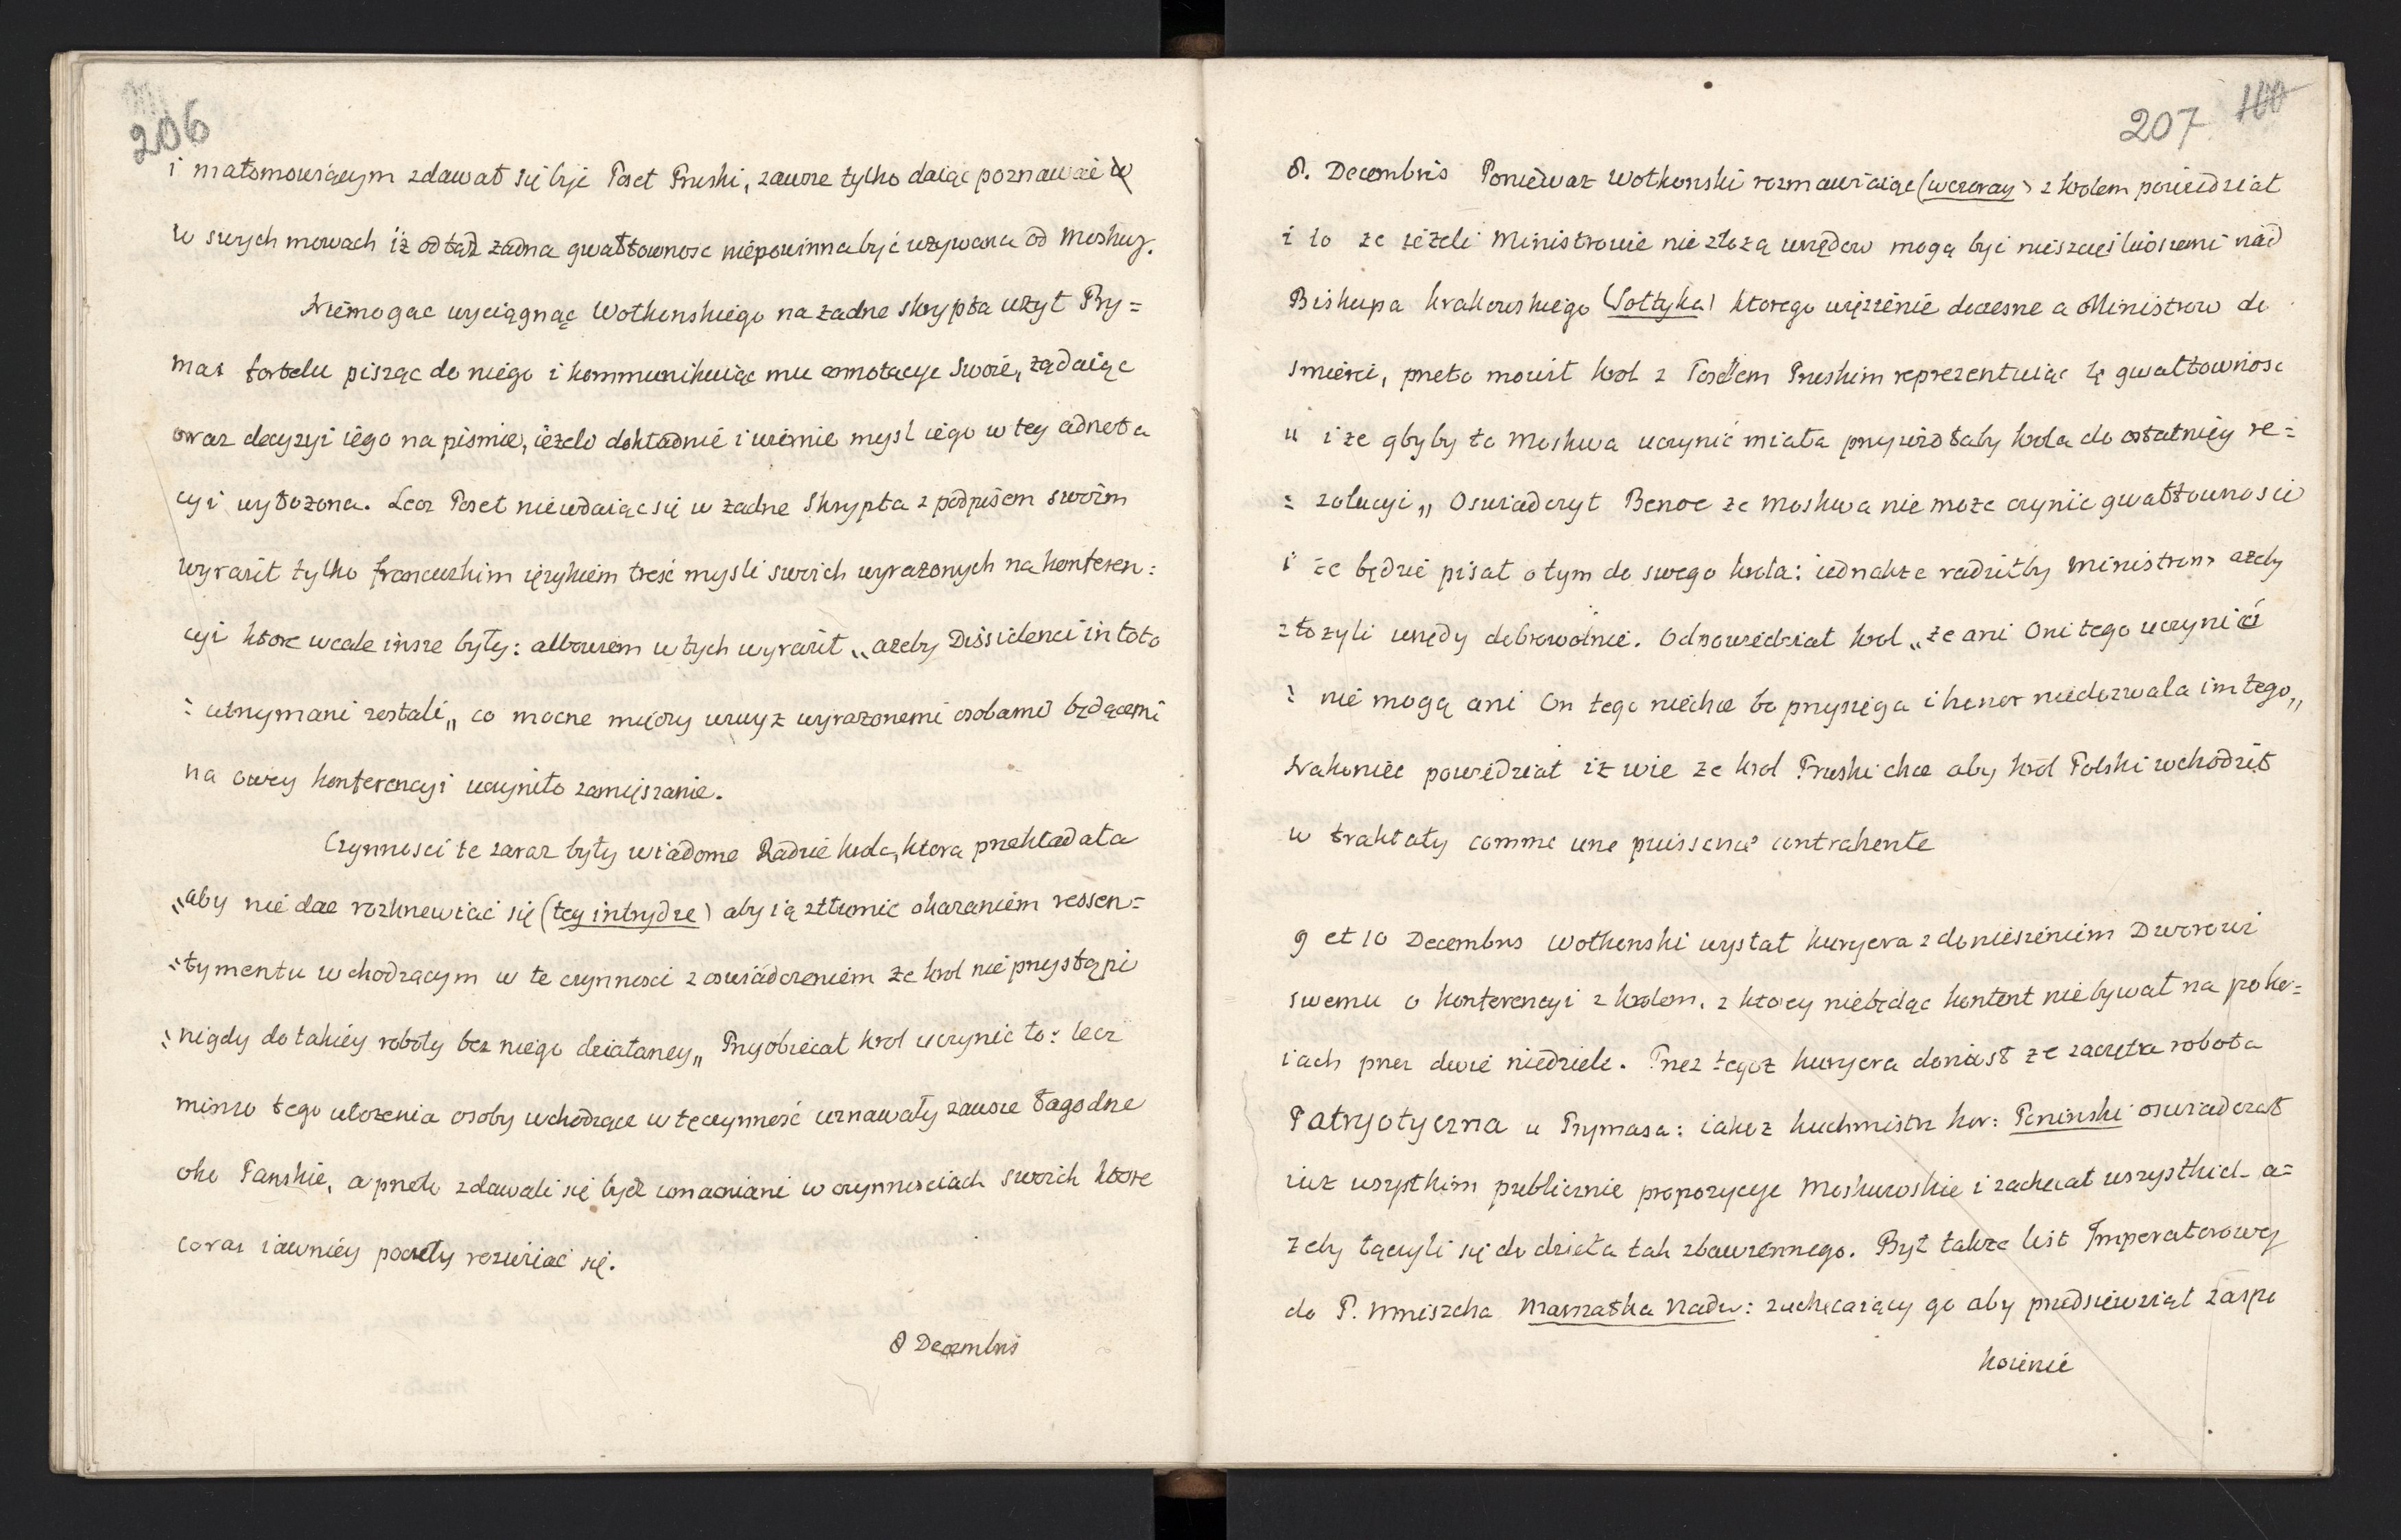 206
i małomowiącym zdawał się byc Poseł Pruski, zawsze tylko daiąc poznawać w
w swych mowach iż odtąd żadna gwałtownosc niepowinna być używana od Moskwy.
Niemogąc wyciągnąc Wołkonskiego na żadne skrypta użył Pry=
mas fortelu pisząc do niego i kommunikuiąc mu annotacye swoie, żądaiąc
oraz decyzyi iego na pismie, ieżeli dokładnie i wiernie mysl iego w tey adnota
cyi wyłożona. Lecz Poseł niewdaiąc się w żadne Skrypta z podpisem swoim
wyraził tylko francuzkim ięzykiem treść mysli swoich wyrażonych na konferen:
cyi ktore wcale insze były: albowiem w tych wyraził „ażeby Dissidenci in toto
: utrzymani zostali„ co mocne między wwyż wyrażonemi osobami będącemi
na owey konferencyi uczyniło zamięszanie.
Czynnosci te zaraz były wiadome Radzie krola, ktora przekładała
„aby nie dac rozkrzewiać się (tey intrydze) aby ią stłumic okazaniem ressen=
:tymentu wchodzącym w te czynnosci z oswiadczeniem że krol nie przystąpi
:nigdy do takiey roboty bez niego działaney„ Przyobiecał krol uczynic to: lecz
mimo tego ułożenia osoby wchodzące w tę czynność uznawały zawsze łagodne
oko Pańskie, a przeto zdawali się bydź wmacniani w czynnosciach swoich ktore
coraz iawniey poczęły rozwiiać się.
8 Decembris
207 100
8. Decembris Ponieważ Wołkonski rozmawiaiąc (wczoray) z krolem powiedział
i to że ieżeli Ministrowie nie złożą urzędow mogą byc nieszczęsliwszemi nad
Biskupa krakowskiego (Sołtyka) ktorego więzienie doczesne a Ministrow do
smierci, przeto mowił krol z Posłem Pruskim reprezentuiąc tę gwałtownosc
„ i że gdyby to Moskwa uczynić miała przywiodłaby krola do ostatniey re=
: zolucyi„ Oswiadczył Benoe że Moskwa nie może czynic gwałtownosci
i że będzie pisał o tym do swego krola: iednakże radziłby Ministrom ażeby
złożyli urzędy dobrowolnie. Odpowiedział krol „że ani Oni tego uczynić
: nie mogą ani On tego niechce bo przysięga i honor niedozwala im tego„
Nakoniec powiedział iż wie że krol Pruski chce aby krol Polski wchodził
w traktaty comme une puissance contrahente
9 et 10 Decembris Wołkonski wysłał kuryera z doniesieniem Dworowi
swemu o konferencyi z krolem, z ktorey niebędąc kontent niebywał na poko=
iach przez dwie niedziele. Przez tegoż kuryera doniosł że zaczęta robota
Patryotyczna u Prymasa: iakoż kuchmistrz kor: Poninski oswiadczał
iuż wszystkim publicznie propozycye Moskwoskie i zachęcał wszystkich a=
żeby łączyli się do dzieła tak zbawiennego. Był także list Imperatorowey
do P. Mniszcha Marszałka Nadw: zachęcaiący go aby przedsięwziął zaspo
koienie